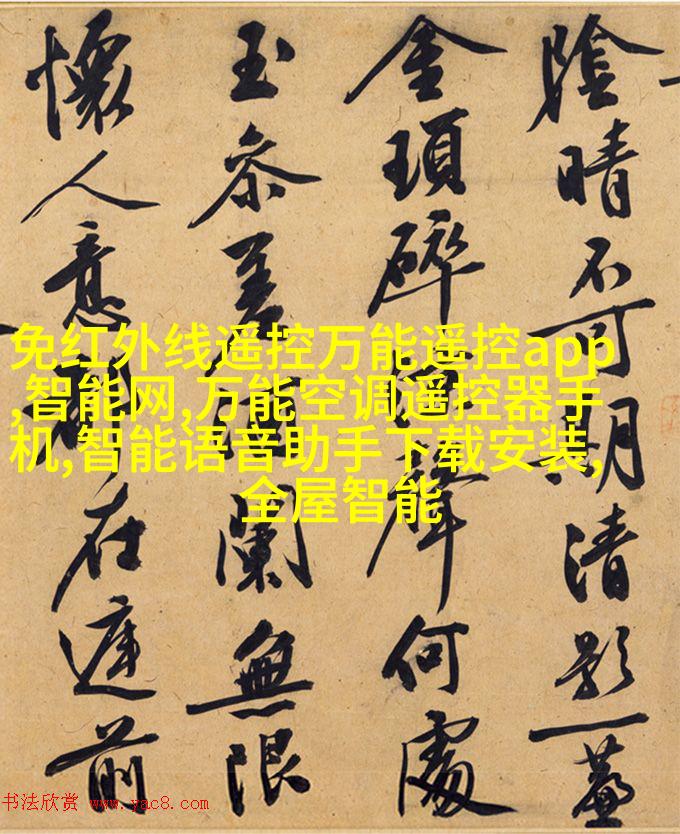 陰晴不可期清影一
金瑣碎聲何處
玉參差闌無限
懷人意在前
免红外线遥控万能遥控app
,智能网,万能空调遥控器手
机,智能语音助手下载安装,
全屋智能
书法欣赏 www.yac8.com